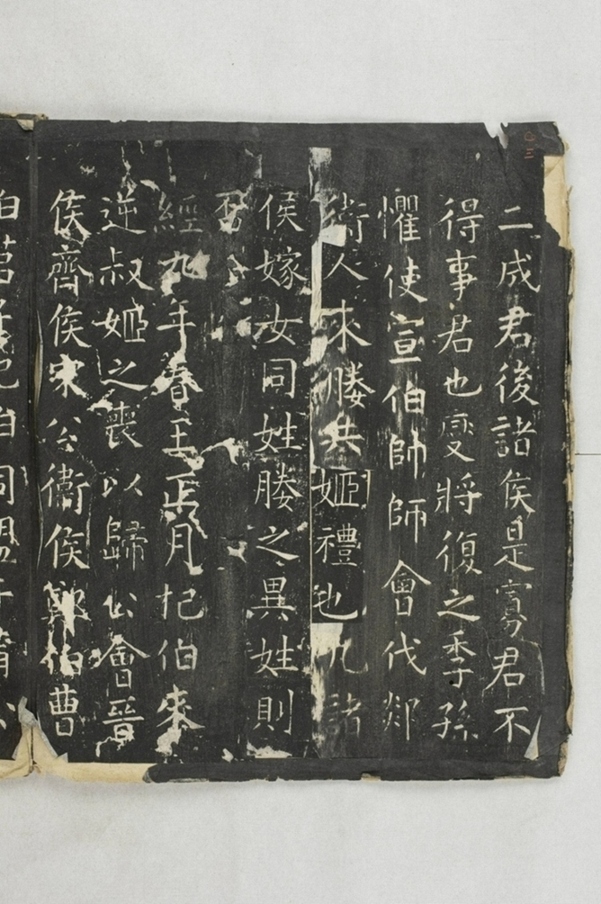 二成君後諸侯是寡君不
得事君也燮將復之季孫
懼使宣伯帥師會伐郯
衛人來媵共姬禮也凡諸
侯嫁女同姓媵之異姓則
否
經九年春王正月杞伯來
逆叔姬之喪以歸公會晉
侯齊侯宋公衛侯鄭伯曹
伯莒子杞伯同盟于蒲公